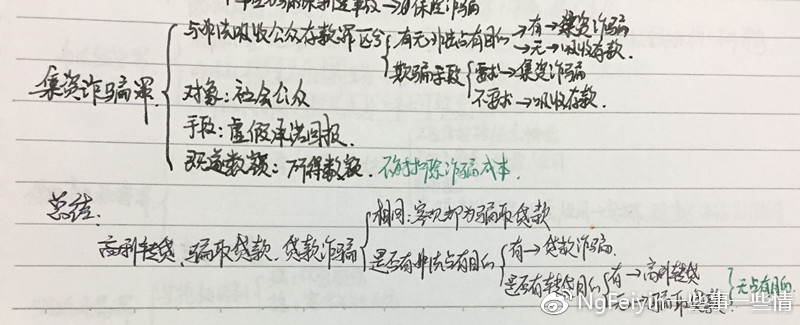 与非法吸收公众存款罪区分
有无非法占有目的→有→集资诈骗
→无→吸收存款.
欺骗手段
要求→集资诈骗
不要求→吸收存款.
集资诈骗罪
对象:社会公众
手段:虚假承诺回报.
既遂数额:所得数额.不能扣除诈骗成本.
总结:
高利转贷、骗取贷款、贷款诈骗
相同:客观都为骗取贷款
是否有非法占有目的
有→贷款诈骗.
是否有转贷目的
有→高利转贷
无占有目的.